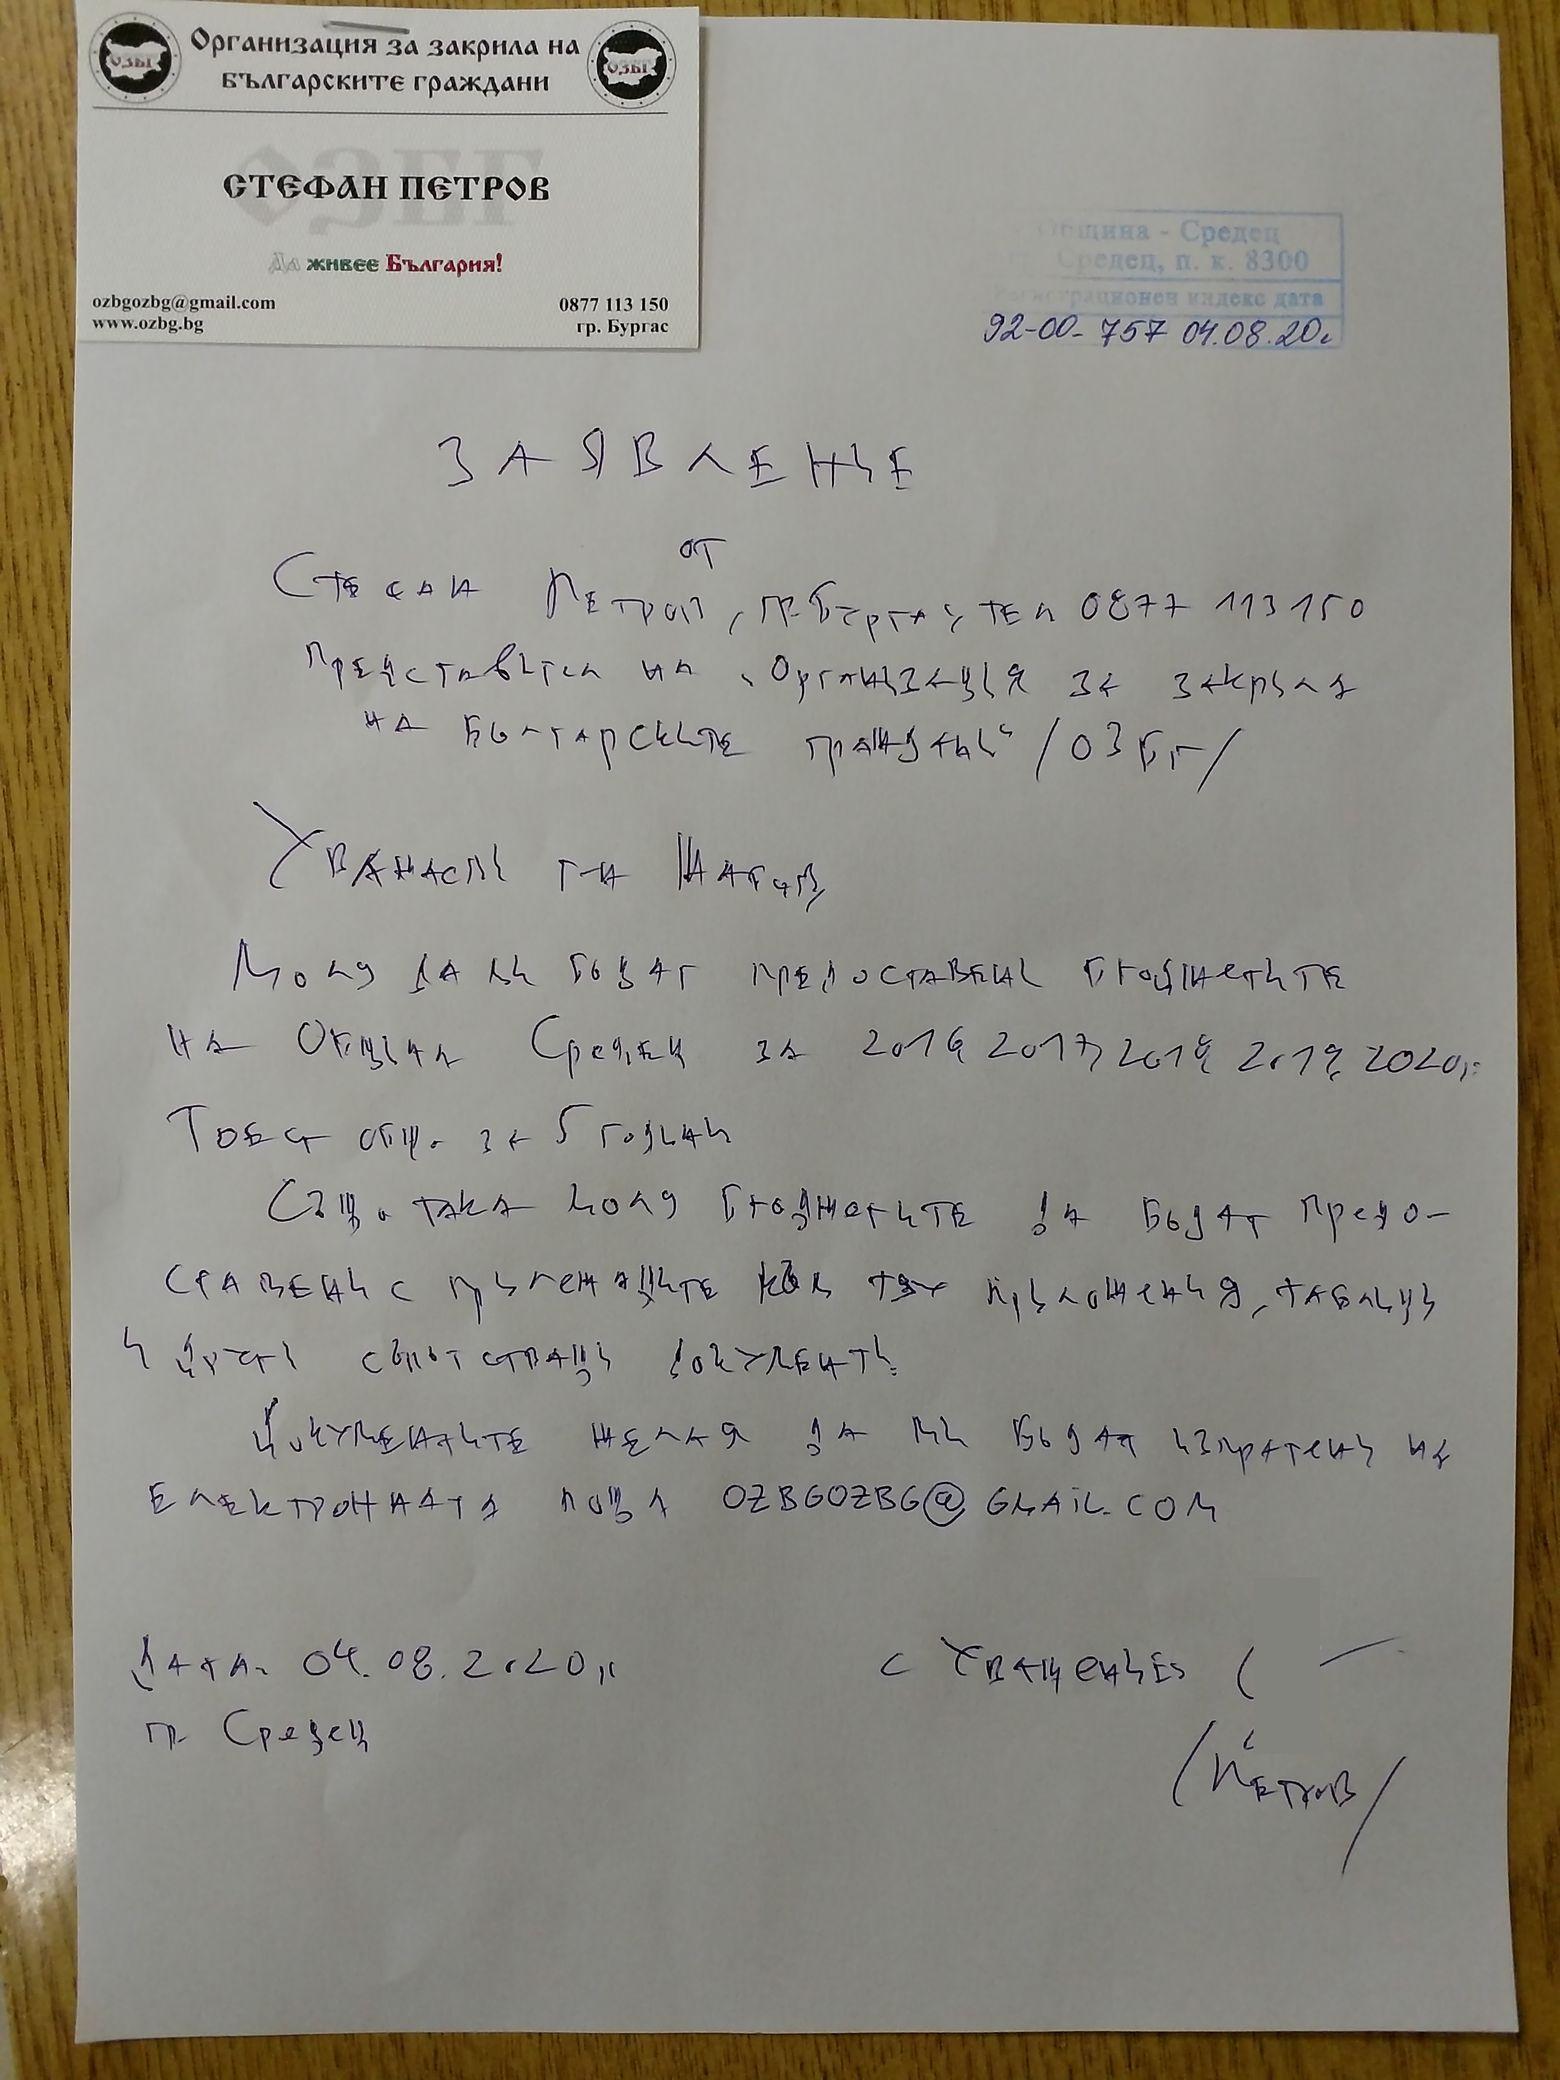 Организация за закрила на
българските граждани
ОЗБГ
ОЗБГ
ОЗБГ
СТЕФАН ПЕТРОВ
Да живее България!
ozbgozbg@gmail.com
www.ozbg.bg
0877 113 150
гр. Бургас
Община - Средец
гр. Средец, п. к. 8300
Регистрационен индекс дата
92-00- 757 04.08.20г
ЗАЯВЛЕНИЕ
от
Стефан Петров, гр. Бургас, тел 0877 113150
Представител на "Организация за закрила
на българските граждани" /ОЗБГ/
Уважаеми г-н
Моля да ми бъдат предоставени бюджетите
на Община Средец за 2016, 2017, 2018, 2019, 2020г.
Тоест общо за 5 години
Също така моля бюджетите да бъдат предо-
ставени с прилежащите към тях приложения, таблици
и други съпътстващи документи.
Документите желая да ми бъдат изпратени на
електронната поща OZBGOZBG@GMAIL.COM
Дата: 04.08.2020г.
гр. Средец
с уважение:
/Петров/